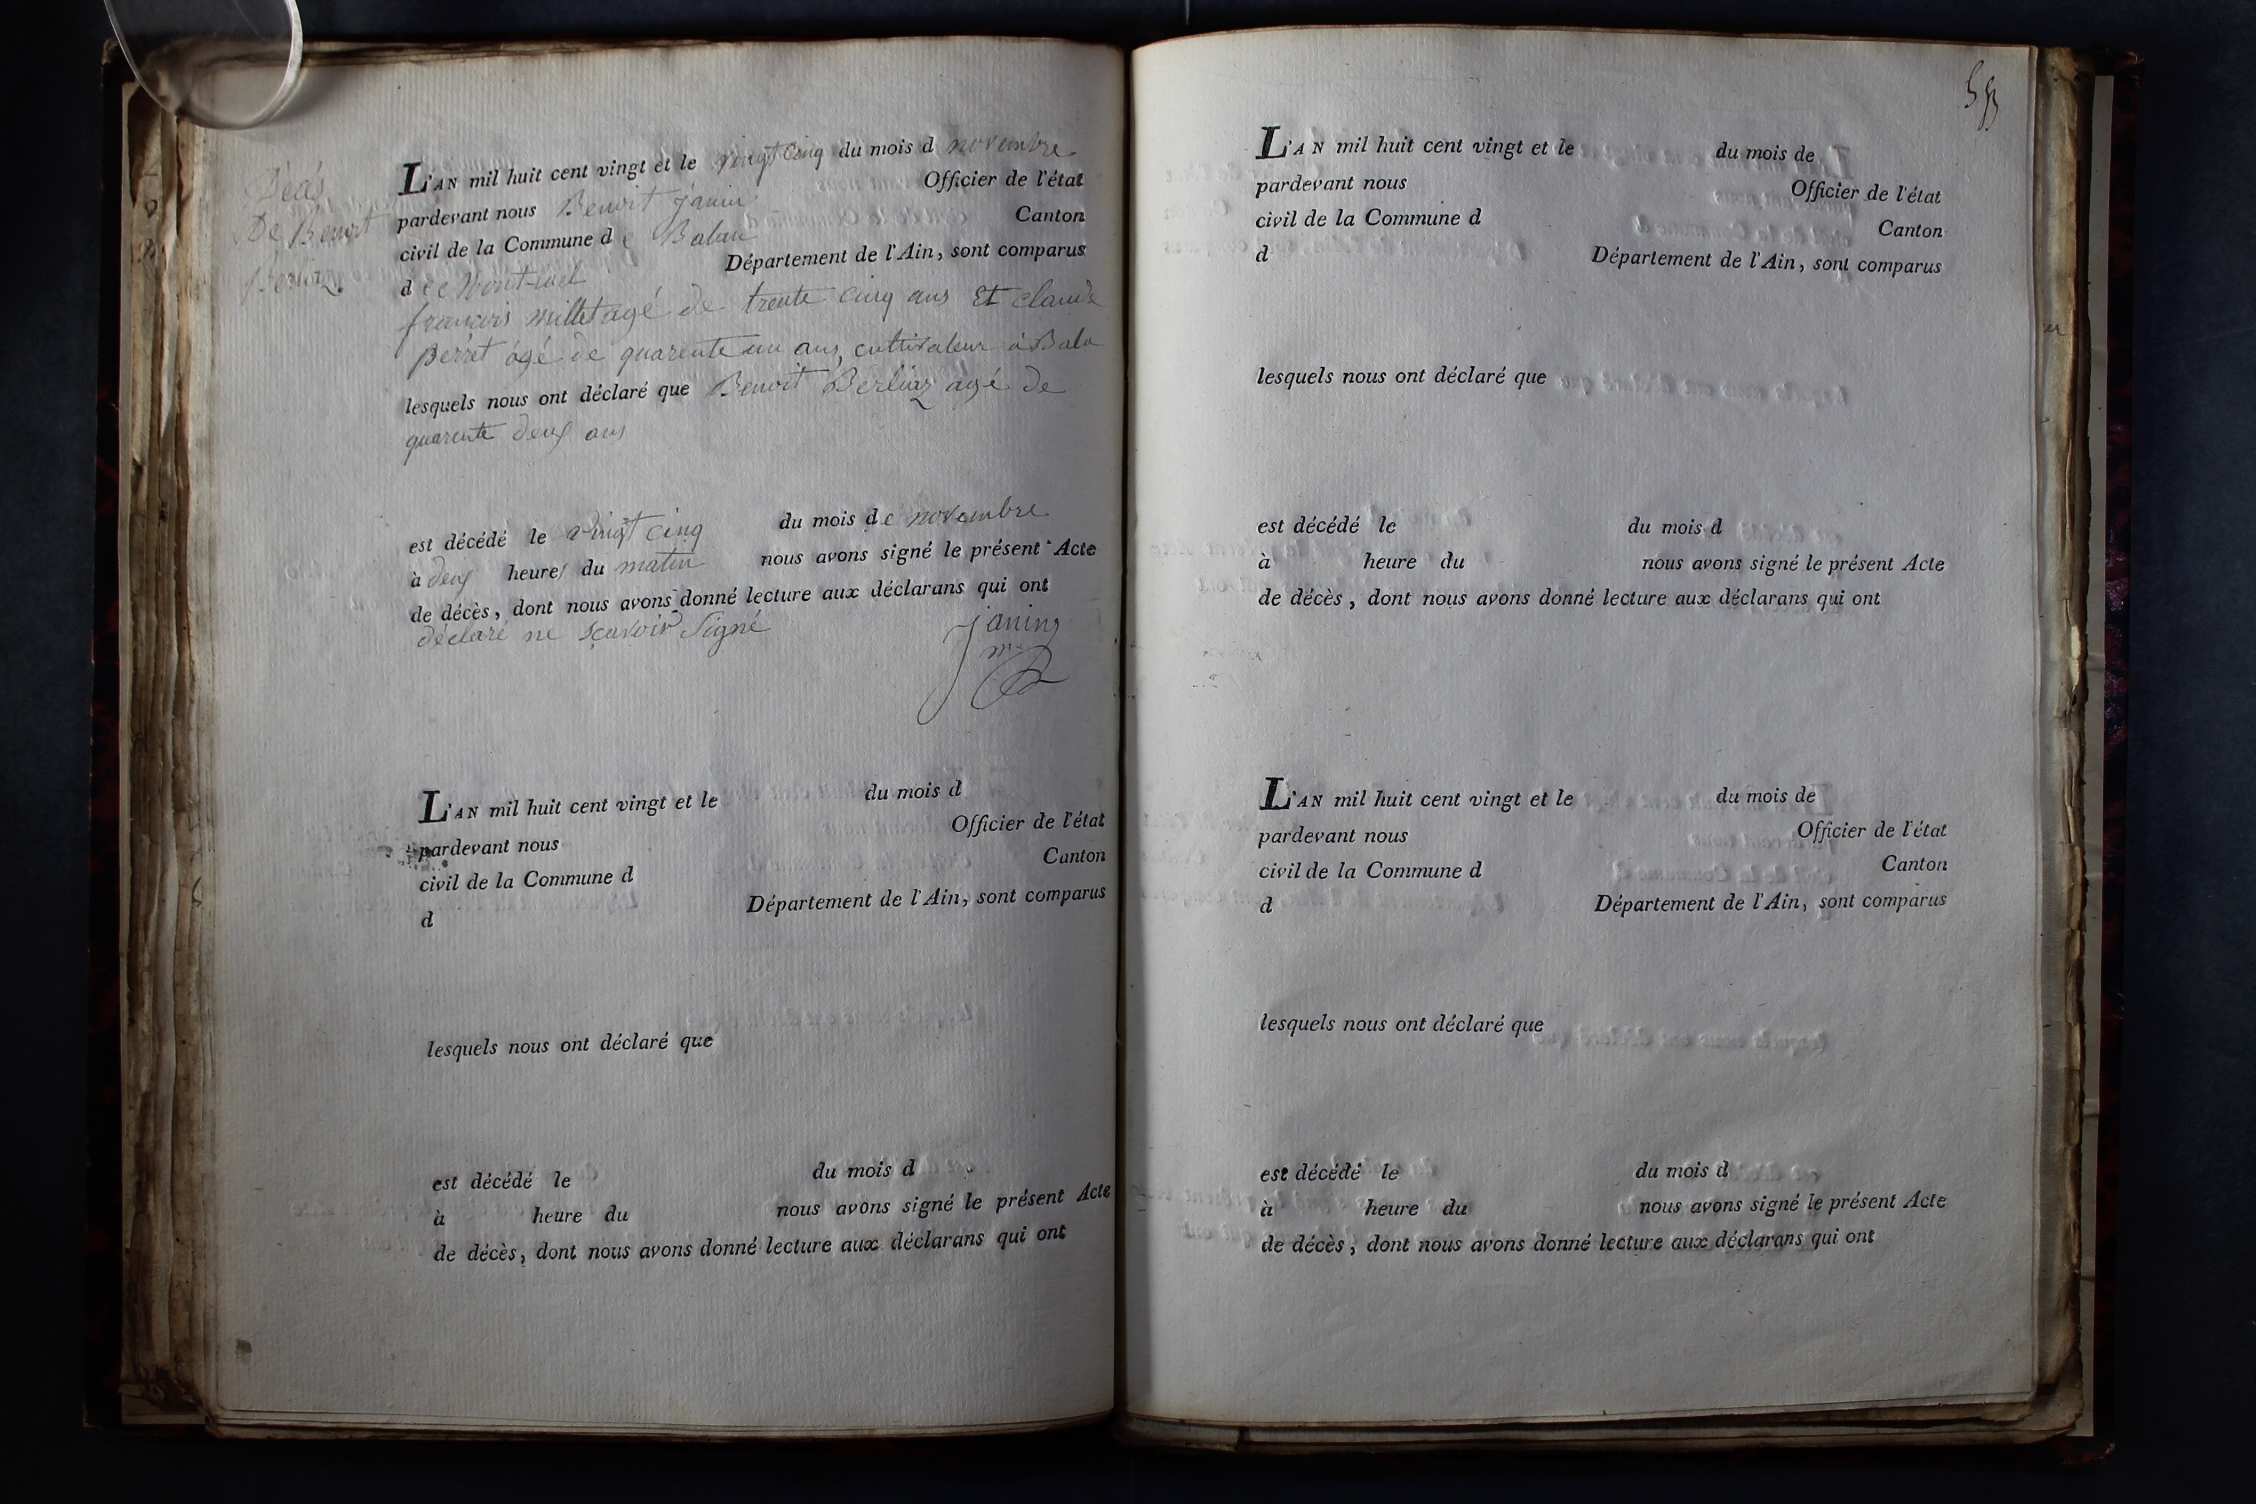 Décès
De Benoit
Berliaz
L'AN mil huit cent vingt et le vingt cinq du mois d novembre
pardevant nous Benoit janin Officier de l'état
civil de la Commune de Balan Canton
de Montluel Département de l'Ain, sont comparus
francois millet agé de trente cinq ans Et claude
perret agé de quarente un ans, cultivateur à Bala
lesquels nous ont déclaré que Benoit Berliaz agé de
quarente deux ans
est décédé le vingt cinq du mois de novembre
à deux heures du matin nous avons signé le présent Acte
de décès, dont nous avons donné lecture aux déclarans qui ont
déclaré ne sçavoir Signé
janin
L'AN mil huit cent vingt et le du mois d
pardevant nous Officier de l'état
civil de la Commune d Canton
d Département de l'Ain, sont comparus
lesquels nous ont déclaré que
est décédé le du mois d
à heure du nous avons signé le présent Acte
de décès, dont nous avons donné lecture aux déclarans qui ont
L'AN mil huit cent vingt et le du mois de
pardevant nous Officier de l'état
civil de la Commune d Canton
d Département de l'Ain, sont comparus
lesquels nous ont déclaré que
est décédé le du mois d
à heure du nous avons signé le présent Acte
de décès, dont nous avons donné lecture aux déclarans qui ont
L'AN mil huit cent vingt et le du mois de
pardevant nous Officier de l'état
civil de la Commune d Canton
d Département de l'Ain, sont comparus
lesquels nous ont déclaré que
est décédé le du mois d
à heure du nous avons signé le présent Acte
de décès, dont nous avons donné lecture aux déclarans qui ont